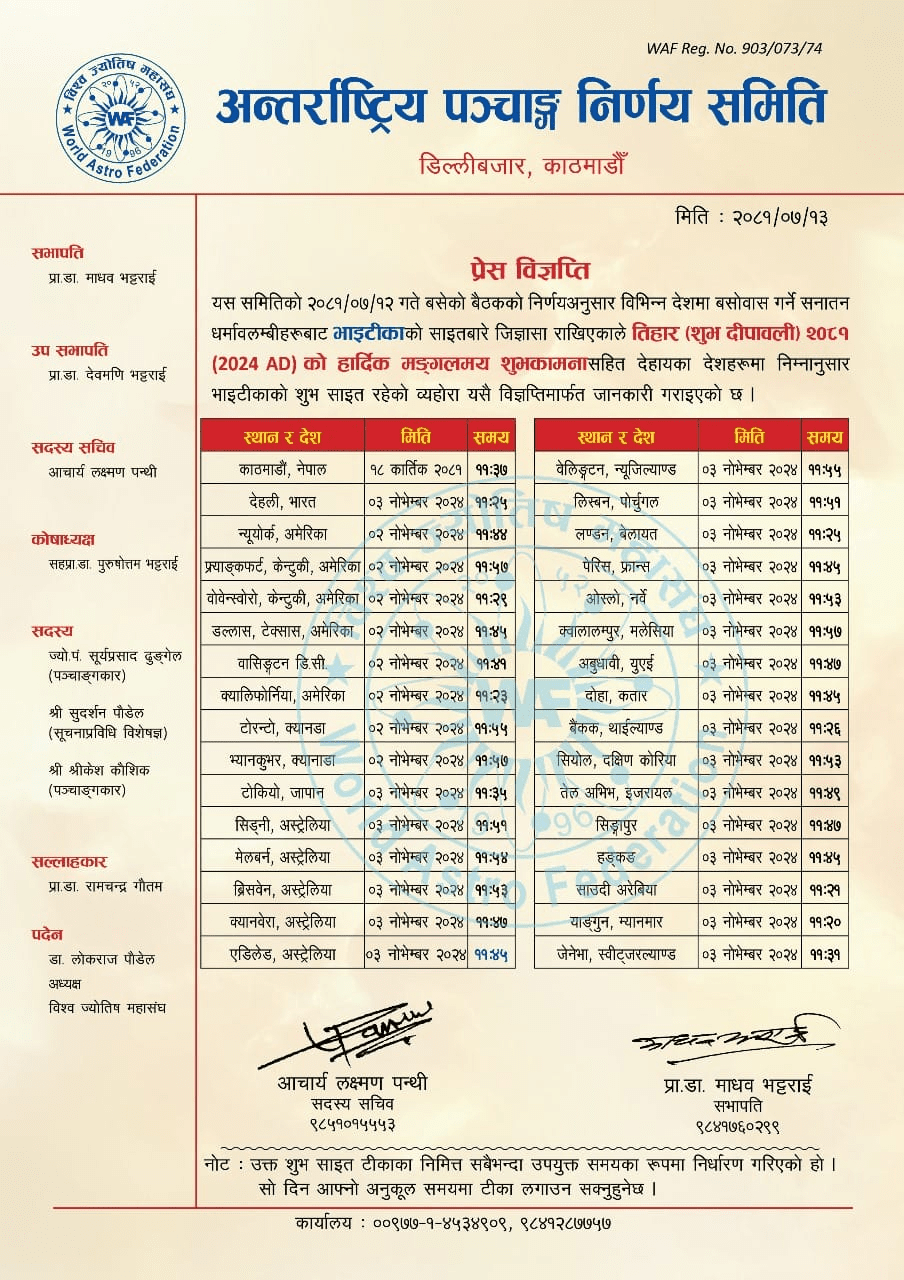 WAF Reg. No. 903/073/74
विश्व ज्योतिष महासंघ
२० ५२
WAF
1996
World Astro Federation
अन्तर्राष्ट्रिय पञ्चाङ्ग निर्णय समिति
डिल्लीबजार, काठमाडौँ
मिति : २०८१/०७/१३
सभापति
प्रा.डा. माधव भट्टराई
उप सभापति
प्रा.डा. देवमणि भट्टराई
सदस्य सचिव
आचार्य लक्ष्मण पन्थी
कोषाध्यक्ष
सहप्रा.डा. पुरुषोतम भट्टराई
सदस्य
ज्यो.पं. सूर्यप्रसाद ढुङ्गेल
(पञ्चाङ्गकार)
श्री सुदर्शन पौडेल
(सूचनाप्रविधि विशेषज्ञ)
श्री श्रीकेश कौशिक
(पञ्चाङ्गकार)
सल्लाहकार
प्रा.डा. रामचन्द्र गौतम
पदेन
डा. लोकराज पौडेल
अध्यक्ष
विश्व ज्योतिष महासंघ
प्रेस विज्ञप्ति
यस समितिको २०८१/०७/१२ गते बसेको बैठकको निर्णयअनुसार विभिन्न देशमा बसोवास गर्ने सनातन
धर्मावलम्बीहरूबाट भाइटीकाको साइतबारे जिज्ञासा राखिएकाले तिहार (शुभ दीपावली) २०८१
(2024 AD) को हार्दिक मङ्गलमय शुभकामनासहित देहायका देशहरूमा निम्नानुसार
भाइटीकाको शुभ साइत रहेको व्यहोरा यसै विज्ञप्तिमार्फत जानकारी गराइएको छ ।
स्थान र देश मिति समय
काठमाडौं, नेपाल १८ कार्तिक २०८१ ११:३७
देहली, भारत ०३ नोभेम्बर २०२४ ११:२५
न्यूयोर्क, अमेरिका ०२ नोभेम्बर २०२४ ११:४४
फ्र्याङ्कफर्ट, केन्टुकी, अमेरिका ०२ नोभेम्बर २०२४ ११:५७
वोवेन्स्वोरो, केन्टुकी, अमेरिका ०२ नोभेम्बर २०२४ ११:२९
डल्लास, टेक्सास, अमेरिका ०२ नोभेम्बर २०२४ ११:४५
वासिङ्टन डि.सी. ०२ नोभेम्बर २०२४ ११:४१
क्यालिफोर्निया, अमेरिका ०२ नोभेम्बर २०२४ ११:२३
टोरन्टो, क्यानडा ०२ नोभेम्बर २०२४ ११:५५
भ्यानकुभर, क्यानाडा ०२ नोभेम्बर २०२४ ११:५७
टोकियो, जापान ०३ नोभेम्बर २०२४ ११:३५
सिड्नी, अस्ट्रेलिया ०३ नोभेम्बर २०२४ ११:५१
मेलबर्न, अस्ट्रेलिया ०३ नोभेम्बर २०२४ ११:५४
ब्रिसवेन, अस्ट्रेलिया ०३ नोभेम्बर २०२४ ११:५३
क्यानवेरा, अस्ट्रेलिया ०३ नोभेम्बर २०२४ ११:४७
एडिलेड, अस्ट्रेलिया ०३ नोभेम्बर २०२४ ११:४५
स्थान र देश मिति समय
वेलिङ्गटन, न्यूजिल्याण्ड ०३ नोभेम्बर २०२४ ११:५५
लिस्बन, पोर्चुगल ०३ नोभेम्बर २०२४ ११:५१
लण्डन, बेलायत ०३ नोभेम्बर २०२४ ११:२५
पेरिस, फ्रान्स ०३ नोभेम्बर २०२४ ११:४५
ओस्लो, नर्वे ०३ नोभेम्बर २०२४ ११:५३
क्वालालम्पुर, मलेसिया ०३ नोभेम्बर २०२४ ११:५७
अबुधावी, युएई ०३ नोभेम्बर २०२४ ११:४७
दोहा, कतार ०३ नोभेम्बर २०२४ ११:४५
बैंकक, थाईल्याण्ड ०३ नोभेम्बर २०२४ ११:२६
सियोल, दक्षिण कोरिया ०३ नोभेम्बर २०२४ ११:५३
तेल अभिभ, इजरायल ०३ नोभेम्बर २०२४ ११:४९
सिङ्गापुर ०३ नोभेम्बर २०२४ ११:४७
हङ्कङ ०३ नोभेम्बर २०२४ ११:४५
साउदी अरेबिया ०३ नोभेम्बर २०२४ ११:२१
याङ्गुन, म्यानमार ०३ नोभेम्बर २०२४ ११:२०
जेनेभा, स्वीट्जरल्याण्ड ०३ नोभेम्बर २०२४ ११:३१
विश्व ज्योतिष महासंघ
२० ५२
WAF
1996
World Astro Federation
आचार्य लक्ष्मण पन्थी
सदस्य सचिव
९८५१०१५५५३
प्रा.डा. माधव भट्टराई
सभापति
९८४१७६०२९९
नोट : उक्त शुभ साइत टीकाका निमित्त सबैभन्दा उपयुक्त समयका रूपमा निर्धारण गरिएको हो ।
सो दिन आफ्नो अनुकूल समयमा टीका लगाउन सक्नुहुनेछ ।
कार्यालय : ००९७७-१-४५३४९०९, ९८४१२८७७५७